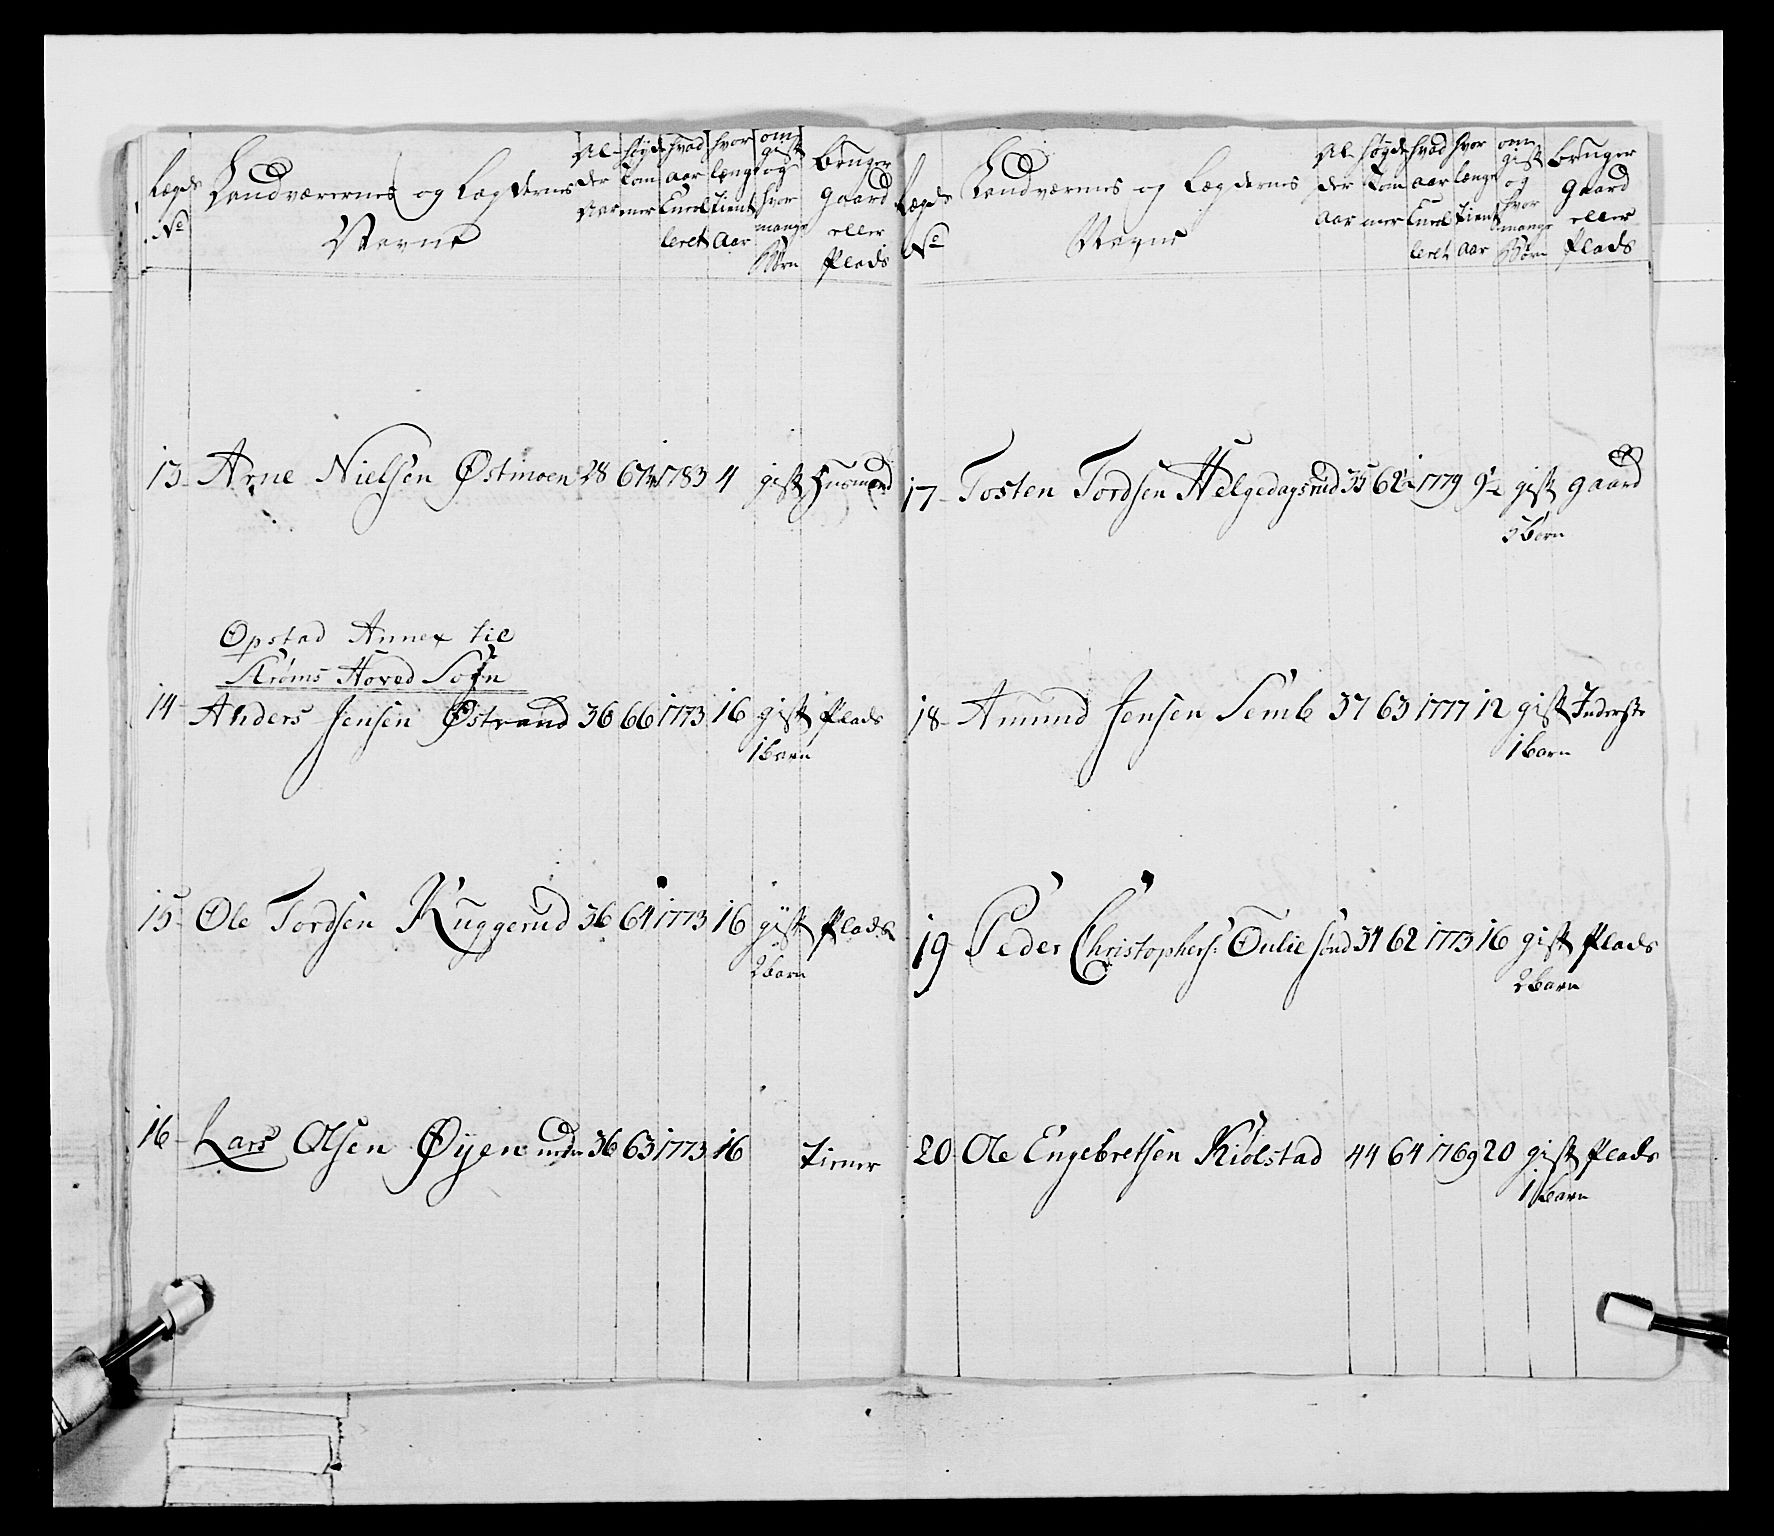 Lægds No
Landværernes og Lægdernes Navne
Alder Aar
høyde Tommer
hvad Aar Enrolleret
hvor længe Tient Aar
om gift og hvor mange Børn
bruger gaard eller Plads
13 Arne Nielsen Østmoen 28 67½ 1783 4 gift Huusmand
Opstad Annex til
Strøms Hoved Sogn
14 Anders Jensen Østrand 36 66 1773 16 gift Plads
1 barn
15 Ole Tordsen Kuggerud 36 64 1773 16 gift Plads
2 barn
16 Lars Olsen Øyen 36 63 1773 16 Tiener
Lægds No
Landværnes og Lægdernes Nagne
Alder Aar
høyde Tommer
hvad Aar Enrolleret
hvor længe Tient Aar
om gift og hvor mange Børn
bruger Gaard eller Plads
17 Tosten Tordsen Helgedagsrud 35 62½ 1779 9½ gift gaard
3 barn
18 Amund Jensen Semb 37 63 1777 12 gift Inderste
1 barn
19 Peder Christophers: Oulie 34 62 1773 16 gift Plads
2 barn
20 Ole Engebretsen Kiølstad 44 64 1769 20 gift Plads
1 barn